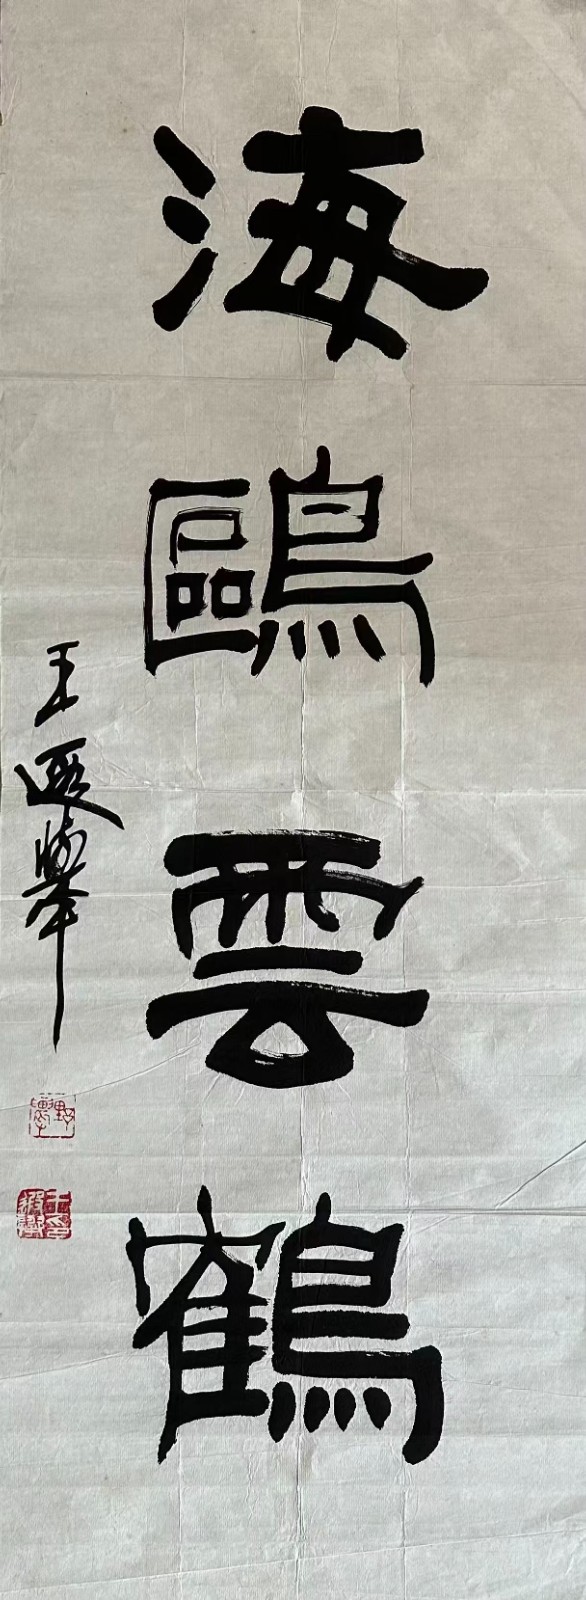 海鷗雲鶴
王遐舉